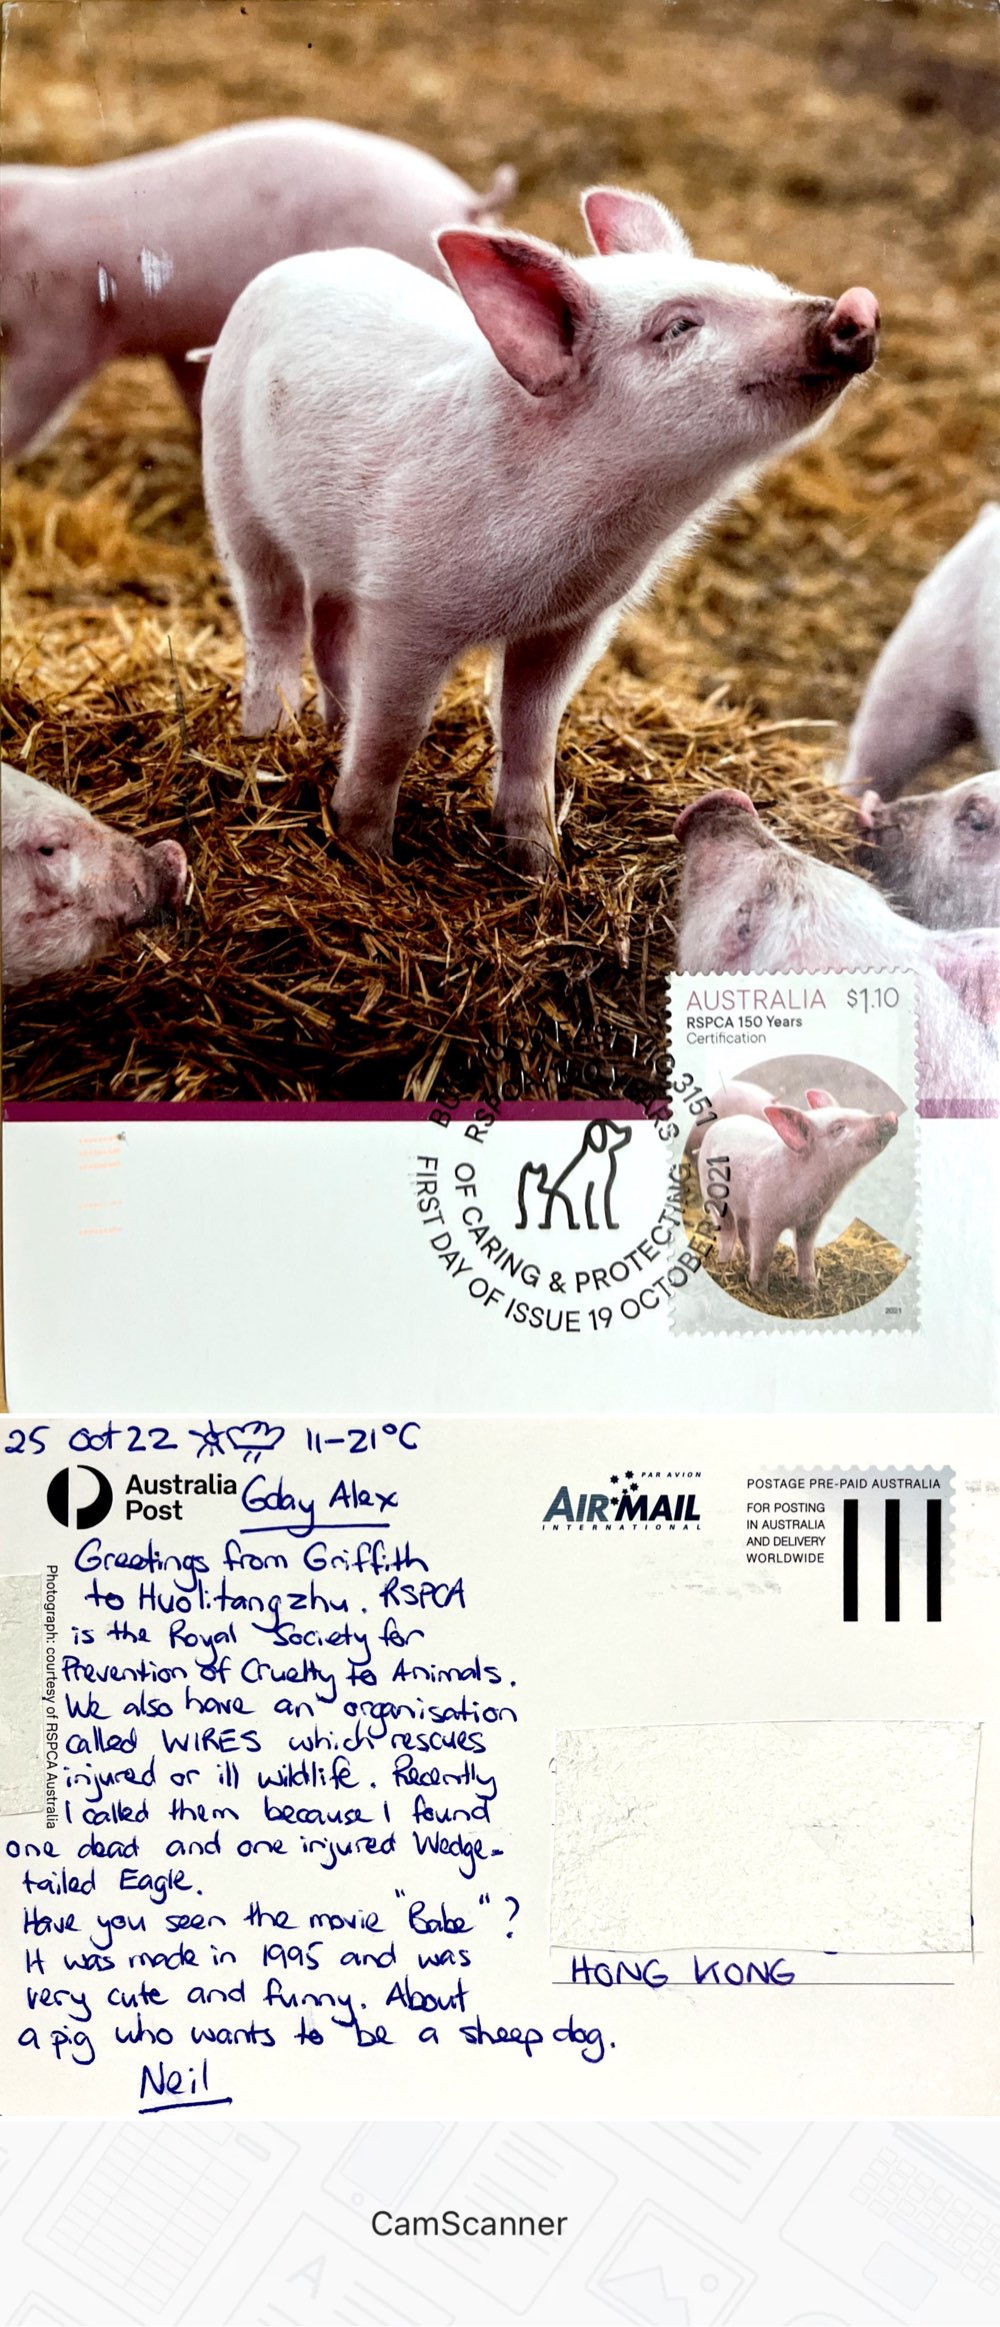 AUSTRALIA $1.10
RSPCA 150 Years
Certification
3151
RSPCA 150 YEARS
OF CARING & PROTECTING
FIRST DAY OF ISSUE 19 OCTOBER 2021
2021
25 Oct 22 11-21°C
Australia
Post
Gday Alex
Greetings from Griffith
to Huolitangzhu. RSPCA
is the Royal Society for
Prevention of Cruelty to Animals.
We also have an organisation
called WIRES which rescues
injured or ill wildlife. Recently
I called them because I found
one dead and one injured Wedge-
tailed Eagle.
Have you seen the movie "Babe"?
It was made in 1995 and was
very cute and funny. About
a pig who wants to be a sheep dog.
Neil
Photograph: courtesy of RSPCA Australia
PAR AVION
AIR MAIL
INTERNATIONAL
POSTAGE PRE-PAID AUSTRALIA
FOR POSTING
IN AUSTRALIA
AND DELIVERY
WORLDWIDE
HONG KONG
CamScanner